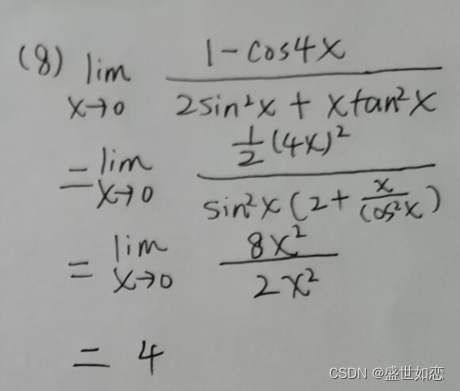 (8) lim x→0 (1-cos4x)/(2sin²x + xtan²x)
= lim x→0 (½(4x)²)/(sin²x(2+x/cos²x))
= lim x→0 8x²/2x²
= 4
CSDN @盛世如恋